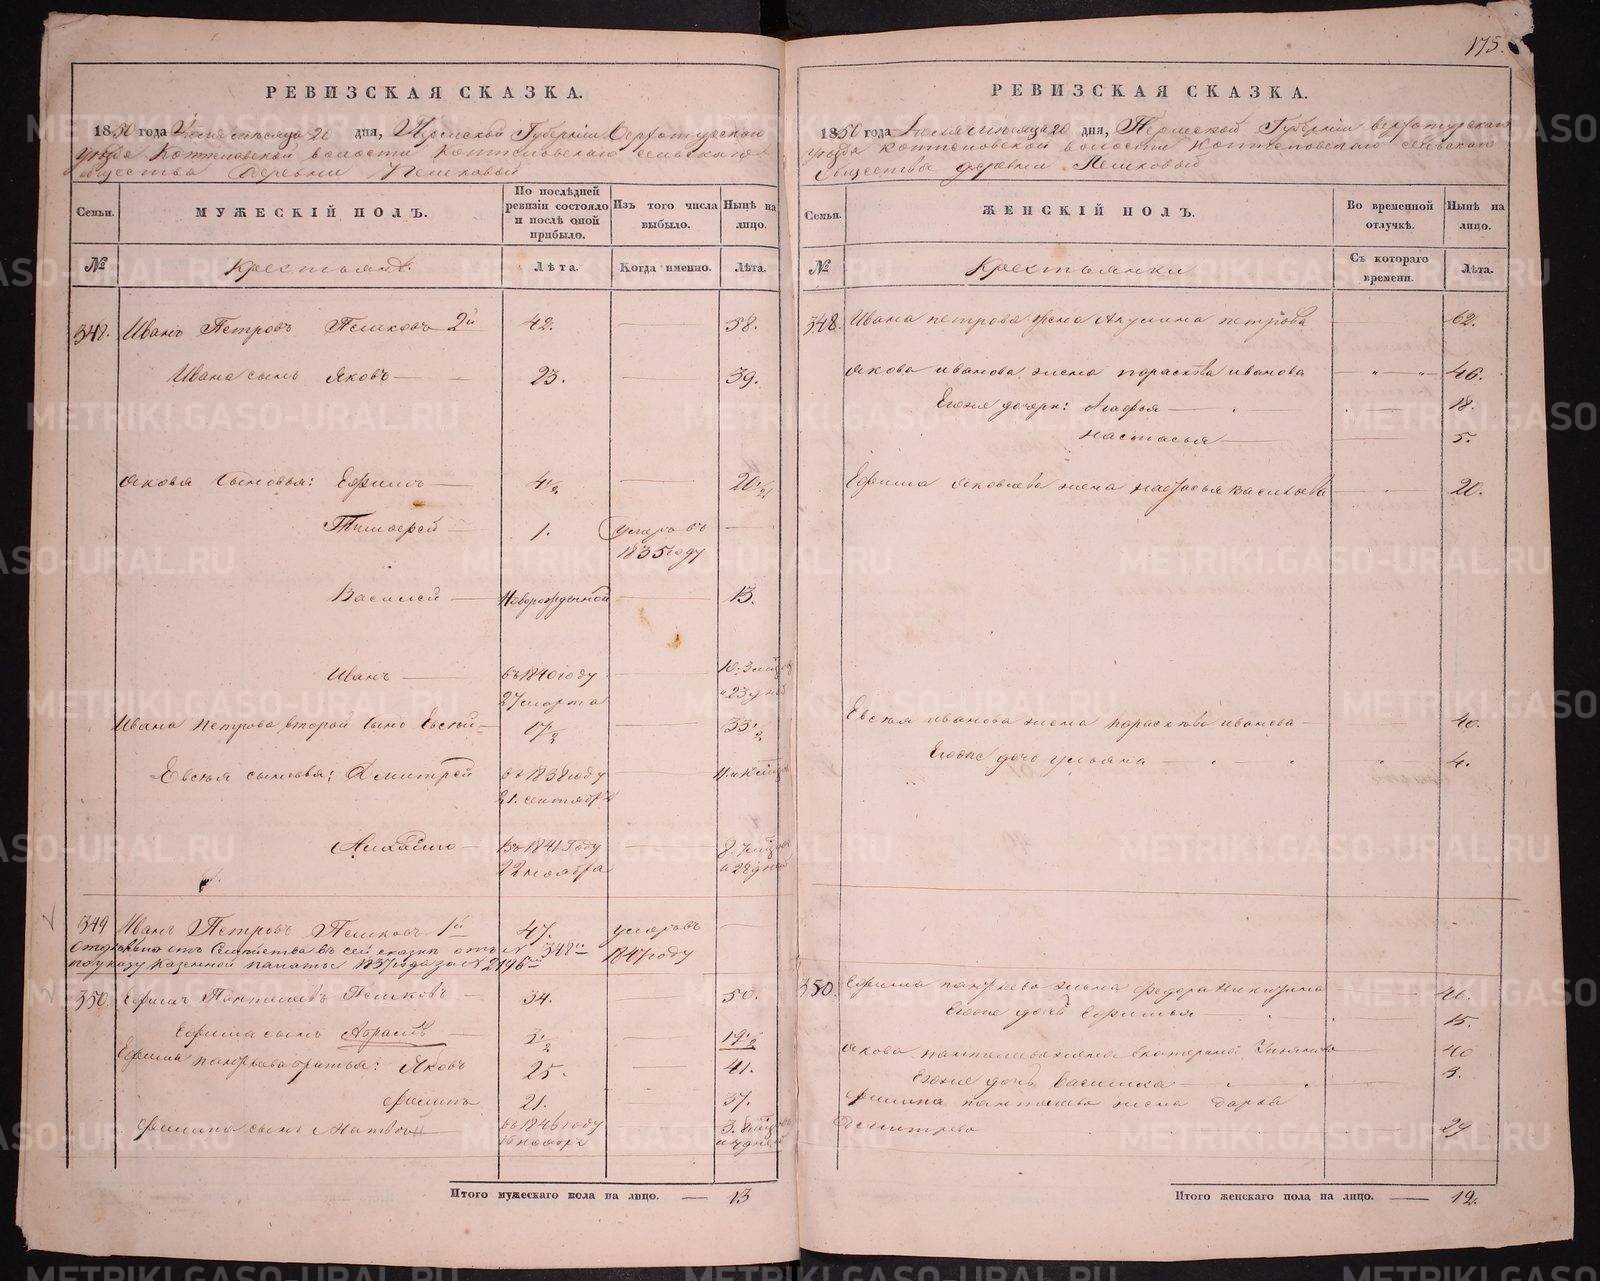 175.
РЕВИЗСКАЯ СКАЗКА.
1850 года Іюля мѣсяца 20 дня, Пермской Губерніи Верхотурскаго
уѣзда Коптеловской волости Коптеловскаго сельскаго
общества деревни
Семьи.
МУЖЕСКІЙ ПОЛЪ.
По послѣдней ревизіи состояло и послѣ оной прибыло.
Изъ того числа выбыло.
Нынѣ на лицо.
№
Крестьянъ.
Лѣта.
Когда именно.
Лѣта.
348. Иванъ Петровъ Пешковъ 2й 42. — 58.
Ивана сынъ Яковъ — 23. — 39.
Якова сыновья: Ефимъ — 4½ — 20½
Тимофей — 1. умеръ въ —
1835 году
Василей — Новорожденной — 13.
Иванъ — въ 1840 году — 10. 3 мѣс
27 марта и 23 дней
Ивана Петрова второй сынъ Евсѣй — 17½ — 33½
Евсѣя сыновья: Дмитрей въ 1838 году — 11 и 10 мѣс
21. сентября
Михайло — въ 1841 году — 8. 7 мѣс
22 ноября и 28 дней
349 Иванъ Петровъ Пешковъ 1й 47. умеръ въ —
отъ семейства въ сей сказкѣ отъ № 348й 1847 году
по указу Казенной палаты 1837 года за № 2196
350. Ефимъ Пантелѣевъ Пешковъ — 34. — 50.
Ефима сынъ Абрамъ — 3½ — 19½
Ефима братья: Яковъ 25. — 41.
Филипъ 21. — 37.
Филипа сынъ Матвей въ 1846 году — 3. 8 мѣс
16 ноября и 4 дней
Итого мужескаго пола на лицо. — 13
РЕВИЗСКАЯ СКАЗКА.
1850 года Іюля мѣсяца 20 дня, Пермской Губерніи верхотурскаго
уѣзда коптеловской волости коптеловскаго сельскаго
общества деревни Пешковый
Семьи.
ЖЕНСКІЙ ПОЛЪ.
Во временной отлучкѣ.
Нынѣ на лицо.
№
Крестьянки
Съ котораго времени.
Лѣта.
348. Ивана петрова жена Акулина петрова — 62.
Якова иванова жена парасковья иванова — " — 46.
Егоже дочери: Агафья — 18.
настасья — 5.
Ефима Яковлева жена настасья васильева — 20.
Евсѣя иванова жена парасковья иванова — 40.
Егоже дочь ульяна — 4.
350. Ефима жена федора никитина — 46.
Егоже дочь Ефимья — 15.
Якова жена екатерина — 40
Егоже дочь василиса — 3.
Филипа жена дарья
Дмитрева 29
Итого женскаго пола на лицо. — 12.